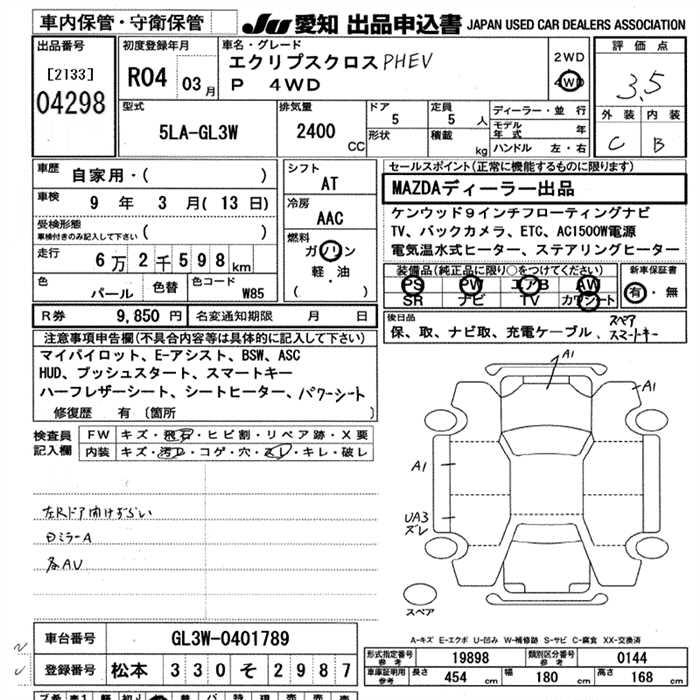 車内保管・守衛保管
JU 愛知 出品申込書 JAPAN USED CAR DEALERS ASSOCIATION
出品番号
[2133]
04298
初度登録年月
R04 03月
車名・グレード
エクリプスクロス PHEV
P 4WD
2WD
4WD
評価点
3.5
外装 内装
C B
型式
5LA-GL3W
排気量
2400
CC
ドア
5
形状
定員
5 人
積載
kg
ディーラー・並行
モデル年式 年
ハンドル 左・右
車歴
自家用・( )
車検
9 年 3 月( 13 日)
受検形態
車検付きのみ記入して下さい ( )
走行
6万 2千 5 9 8 km
色
パール
色替
色コード
W85
シフト
AT
冷房
AAC
燃料
ガソリン
軽・油
( )
セールスポイント(正常に機能するものに限ります)
MAZDAディーラー出品
ケンウッド9インチフローティングナビ
TV、バックカメラ、ETC、AC1500W電源
電気温水式ヒーター、ステアリングヒーター
装備品(純正品に限り○をつけてください)
PS PW エアB AW
SR ナビ TV カワシート
新車保証書
有・無
R券 9,850 円
名変通知期限 月 日
後日品
保、取、ナビ取、充電ケーブル、スペアスマートキー
注意事項申告欄(不具合内容等は具体的に記入して下さい)
マイパイロット、E-アシスト、BSW、ASC
HUD、プッシュスタート、スマートキー
ハーフレザーシート、シートヒーター、パワーシート
修復歴 有 〔箇所 〕
検査員記入欄
FW キズ・飛石・ヒビ割・リペア跡・X要
内装 キズ・汚レ・コゲ・穴・スレ・キレ・破レ
左Rドア開けずらい
ワミラーA
各AU
A1
A1
A1
UA3
ズレ
スペア
A-キズ E-エクボ U-凹み W-補修跡 S-サビ C-腐食 XX-交換済
車台番号
GL3W-0401789
登録番号
松本 3 3 0 そ 2 9 8 7
形式指定番号
参考
19898
類別区分番号
参考
0144
車庫証明用
参考
長さ 454 cm
幅 180 cm
高さ 168 cm